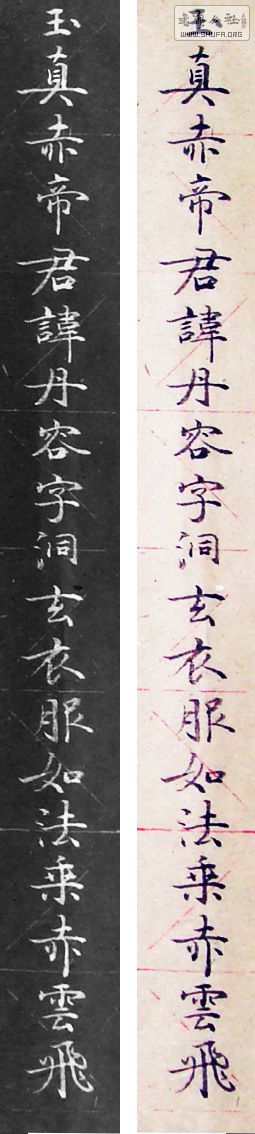 WWW.SHUFA.ORG
玉真赤帝君諱丹容字洞玄衣服如法乗赤雲飛
玉真赤帝君諱丹容字洞玄衣服如法乗赤雲飛